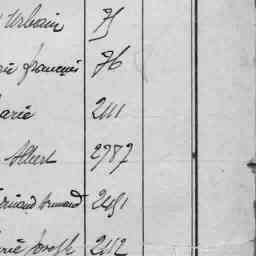 Urbain 75
françois 76
arie 2111
Albert 2787
Armand 2491
Joseph 2112